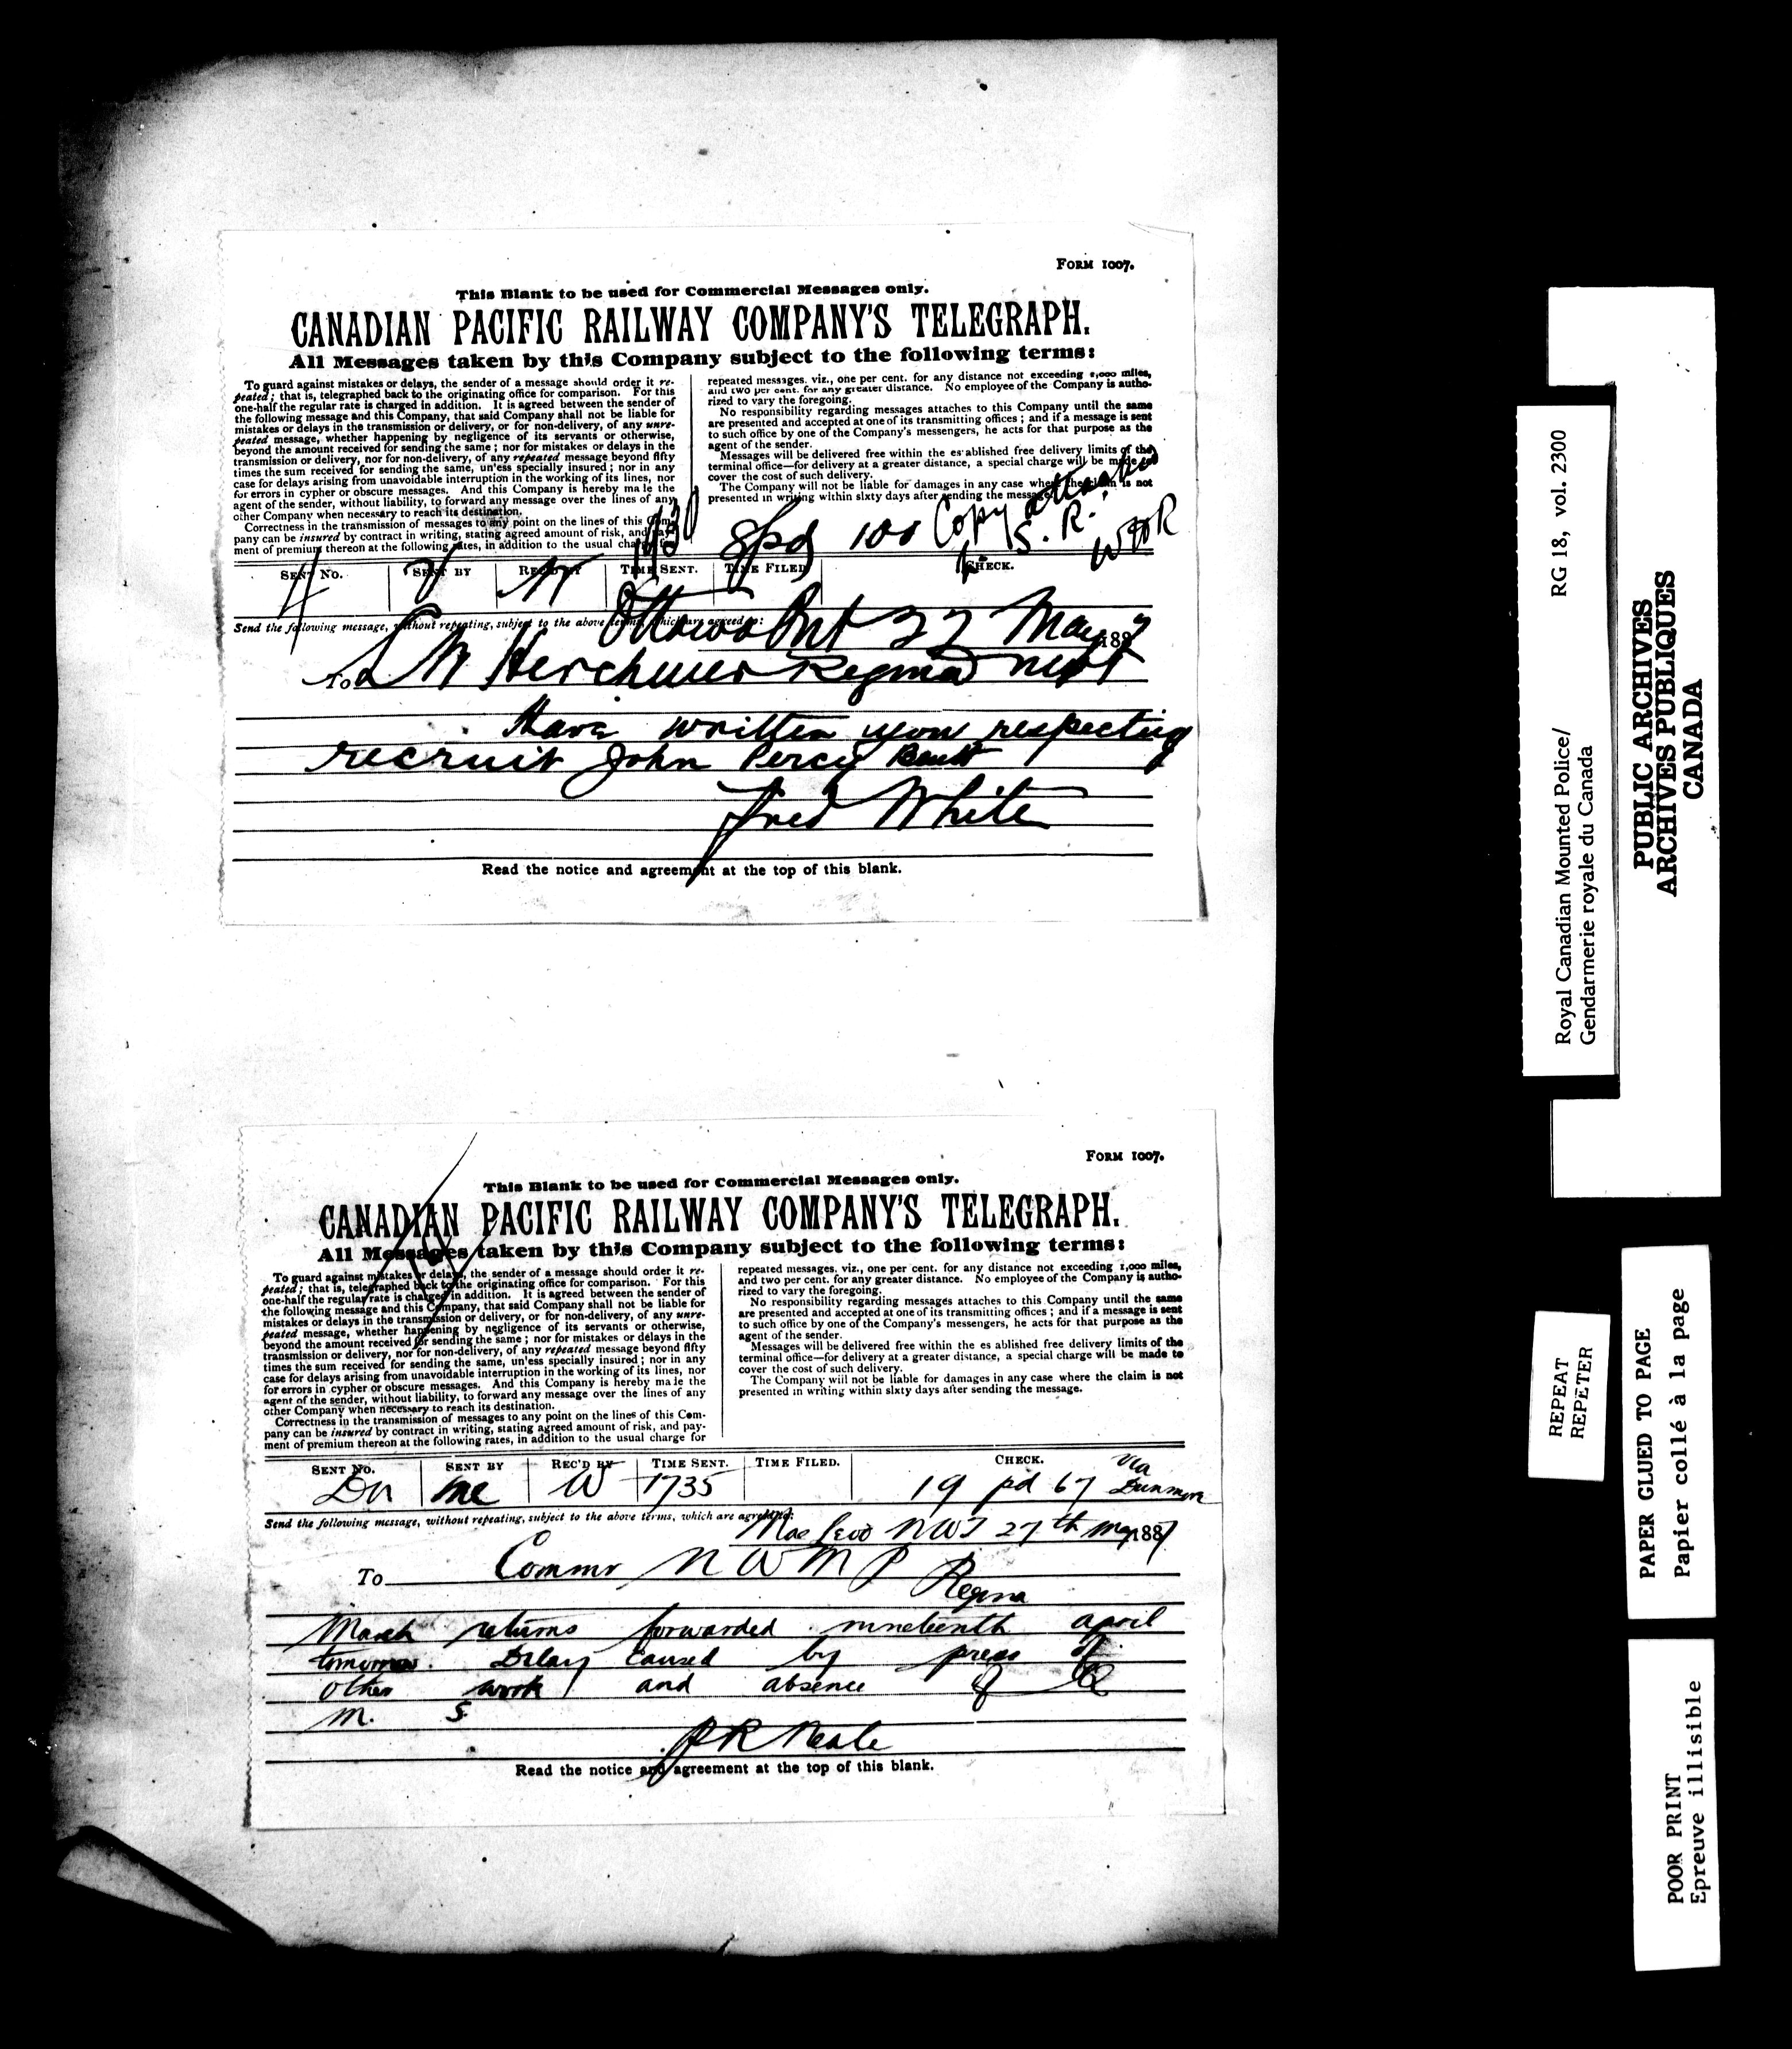 FORM 1007.
This Blank to be used for Commercial Messages only.
CANADIAN PACIFIC RAILWAY COMPANY'S TELEGRAPH.
All Messages taken by this Company subject to the following terms:
To guard against mistakes or delays, the sender of a message should order it re-
peated; that is, telegraphed back to the originating office for comparison. For this
one-half the regular rate is charged in addition. It is agreed between the sender of
the following message and this Company, that said Company shall not be liable for
mistakes or delays in the transmission or delivery, or for non-delivery, of any unre-
peated message, whether happening by negligence of its servants or otherwise,
beyond the amount received for sending the same; nor for mistakes or delays in the
transmission or delivery, nor for non-delivery, of any repeated message beyond fifty
times the sum received for sending the same, un'ess specially insured; nor in any
case for delays arising from unavoidable interruption in the working of its lines, nor
for errors in cypher or obscure messages. And this Company is hereby ma le the
agent of the sender, without liability, to forward any message over the lines of any
other Company when necessary to reach its destination.
Correctness in the transmission of messages to any point on the lines of this Com-
pany can be insured by contract in writing, stating agreed amount of risk, and pay-
ment of premium thereon at the following rates, in addition to the usual charge for
repeated messages. viz., one per cent. for any distance not exceeding 1,000 miles,
and two per cent. for any greater distance. No employee of the Company is autho-
rized to vary the foregoing.
No responsibility regarding messages attaches to this Company until the same
are presented and accepted at one of its transmitting offices; and if a message is sent
to such office by one of the Company's messengers, he acts for that purpose as the
agent of the sender.
Messages will be delivered free within the es'ablished free delivery limits of the
terminal office—for delivery at a greater distance, a special charge will be made to
cover the cost of such delivery.
The Company will not be liable for damages in any case where the claim is not
presented in writing within sixty days after sending the message.
8pd 100 Copy
S. R.
SENT NO. SENT BY REC'D BY TIME SENT. TIME FILED CHECK.
Send the following message, without repeating, subject to the above terms, which are agreed to:
Ottawa Ont 27 May 1887
To L W Herchmer Regina nwt
Have written you respecting
recruit John Percy
Fred White
Read the notice and agreement at the top of this blank.
FORM 1007.
This Blank to be used for Commercial Messages only.
CANADIAN PACIFIC RAILWAY COMPANY'S TELEGRAPH.
All Messages taken by this Company subject to the following terms:
To guard against mistakes or delays, the sender of a message should order it re-
peated; that is, telegraphed back to the originating office for comparison. For this
one-half the regular rate is charged in addition. It is agreed between the sender of
the following message and this Company, that said Company shall not be liable for
mistakes or delays in the transmission or delivery, or for non-delivery, of any unre-
peated message, whether happening by negligence of its servants or otherwise,
beyond the amount received for sending the same; nor for mistakes or delays in the
transmission or delivery, nor for non-delivery, of any repeated message beyond fifty
times the sum received for sending the same, un'ess specially insured; nor in any
case for delays arising from unavoidable interruption in the working of its lines, nor
for errors in cypher or obscure messages. And this Company is hereby ma le the
agent of the sender, without liability, to forward any message over the lines of any
other Company when necessary to reach its destination.
Correctness in the transmission of messages to any point on the lines of this Com-
pany can be insured by contract in writing, stating agreed amount of risk, and pay-
ment of premium thereon at the following rates, in addition to the usual charge for
repeated messages. viz., one per cent. for any distance not exceeding 1,000 miles,
and two per cent. for any greater distance. No employee of the Company is autho-
rized to vary the foregoing.
No responsibility regarding messages attaches to this Company until the same
are presented and accepted at one of its transmitting offices; and if a message is sent
to such office by one of the Company's messengers, he acts for that purpose as the
agent of the sender.
Messages will be delivered free within the es ablished free delivery limits of the
terminal office—for delivery at a greater distance, a special charge will be made to
cover the cost of such delivery.
The Company will not be liable for damages in any case where the claim is not
presented in writing within sixty days after sending the message.
SENT NO. SENT BY REC'D BY TIME SENT. TIME FILED. CHECK.
Dn me W 1735 19 pd 67 via Dunmore
Send the following message, without repeating, subject to the above terms, which are agreed to:
Macleod NWT 27th May 1887
To Commr N W M P
Regina
March returns forwarded nineteenth april
tomorrow. Delay caused by press of
other work and absence of
M. S
P R Neale
Read the notice and agreement at the top of this blank.
RG 18, vol. 2300
Royal Canadian Mounted Police/
Gendarmerie royale du Canada
PUBLIC ARCHIVES
ARCHIVES PUBLIQUES
CANADA
REPEAT
REPÉTER
PAPER GLUED TO PAGE
Papier collé à la page
POOR PRINT
Epreuve illisible